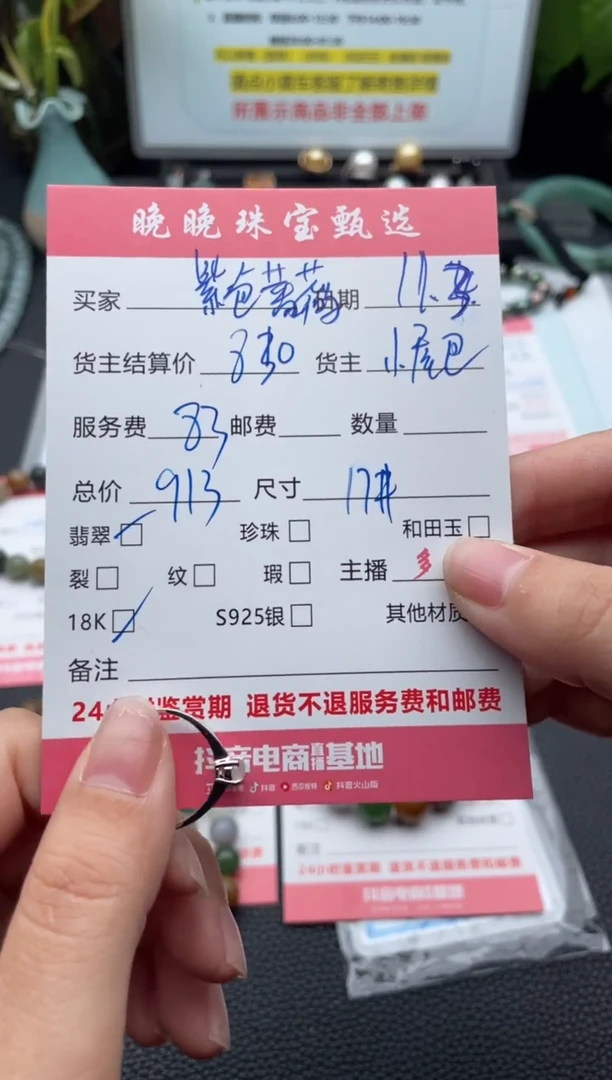 轩展示商品非全部上架
晚晚珠宝甄选
买家 紫色蔷薇 日期 11.
货主结算价 830 货主 小尾巴
服务费 83 邮费 数量
总价 913 尺寸 17#
翡翠 珍珠 和田玉
裂 纹 瑕 主播 多
18K S925银 其他材质
备注
24小时鉴赏期 退货不退服务费和邮费
抖音电商直播基地
抖音 西瓜视频 抖音火山版
备注
24小时鉴赏期 退货不退服务费和邮费
抖音电商直播基地